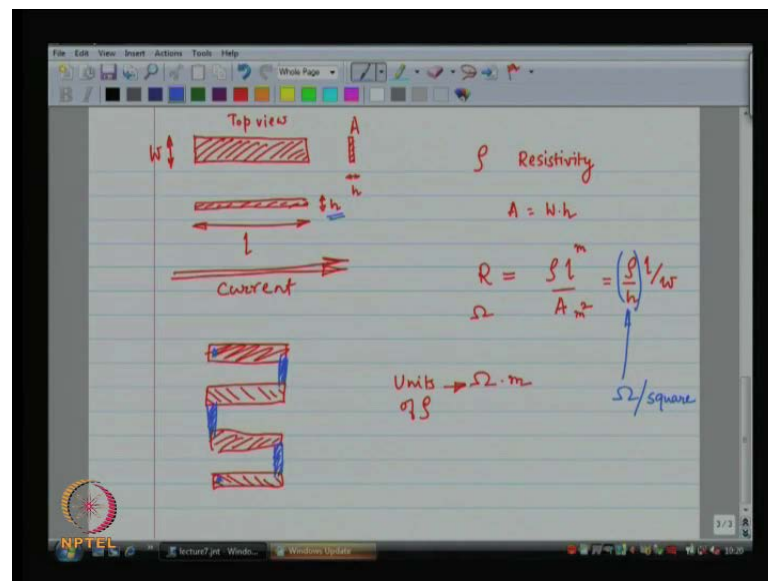 File Edit View Insert Actions Tools Help
Whole Page
B I
Top view
A
W
h
h
l
Current
ρ Resistivity
A = W.h
R = ρ l m / A m² = (ρ/h) l/w
Ω
Units of ρ → Ω.m
Ω/square
3/3
NPTEL
lecture7.jnt - Windo...
Windows Update
10:20